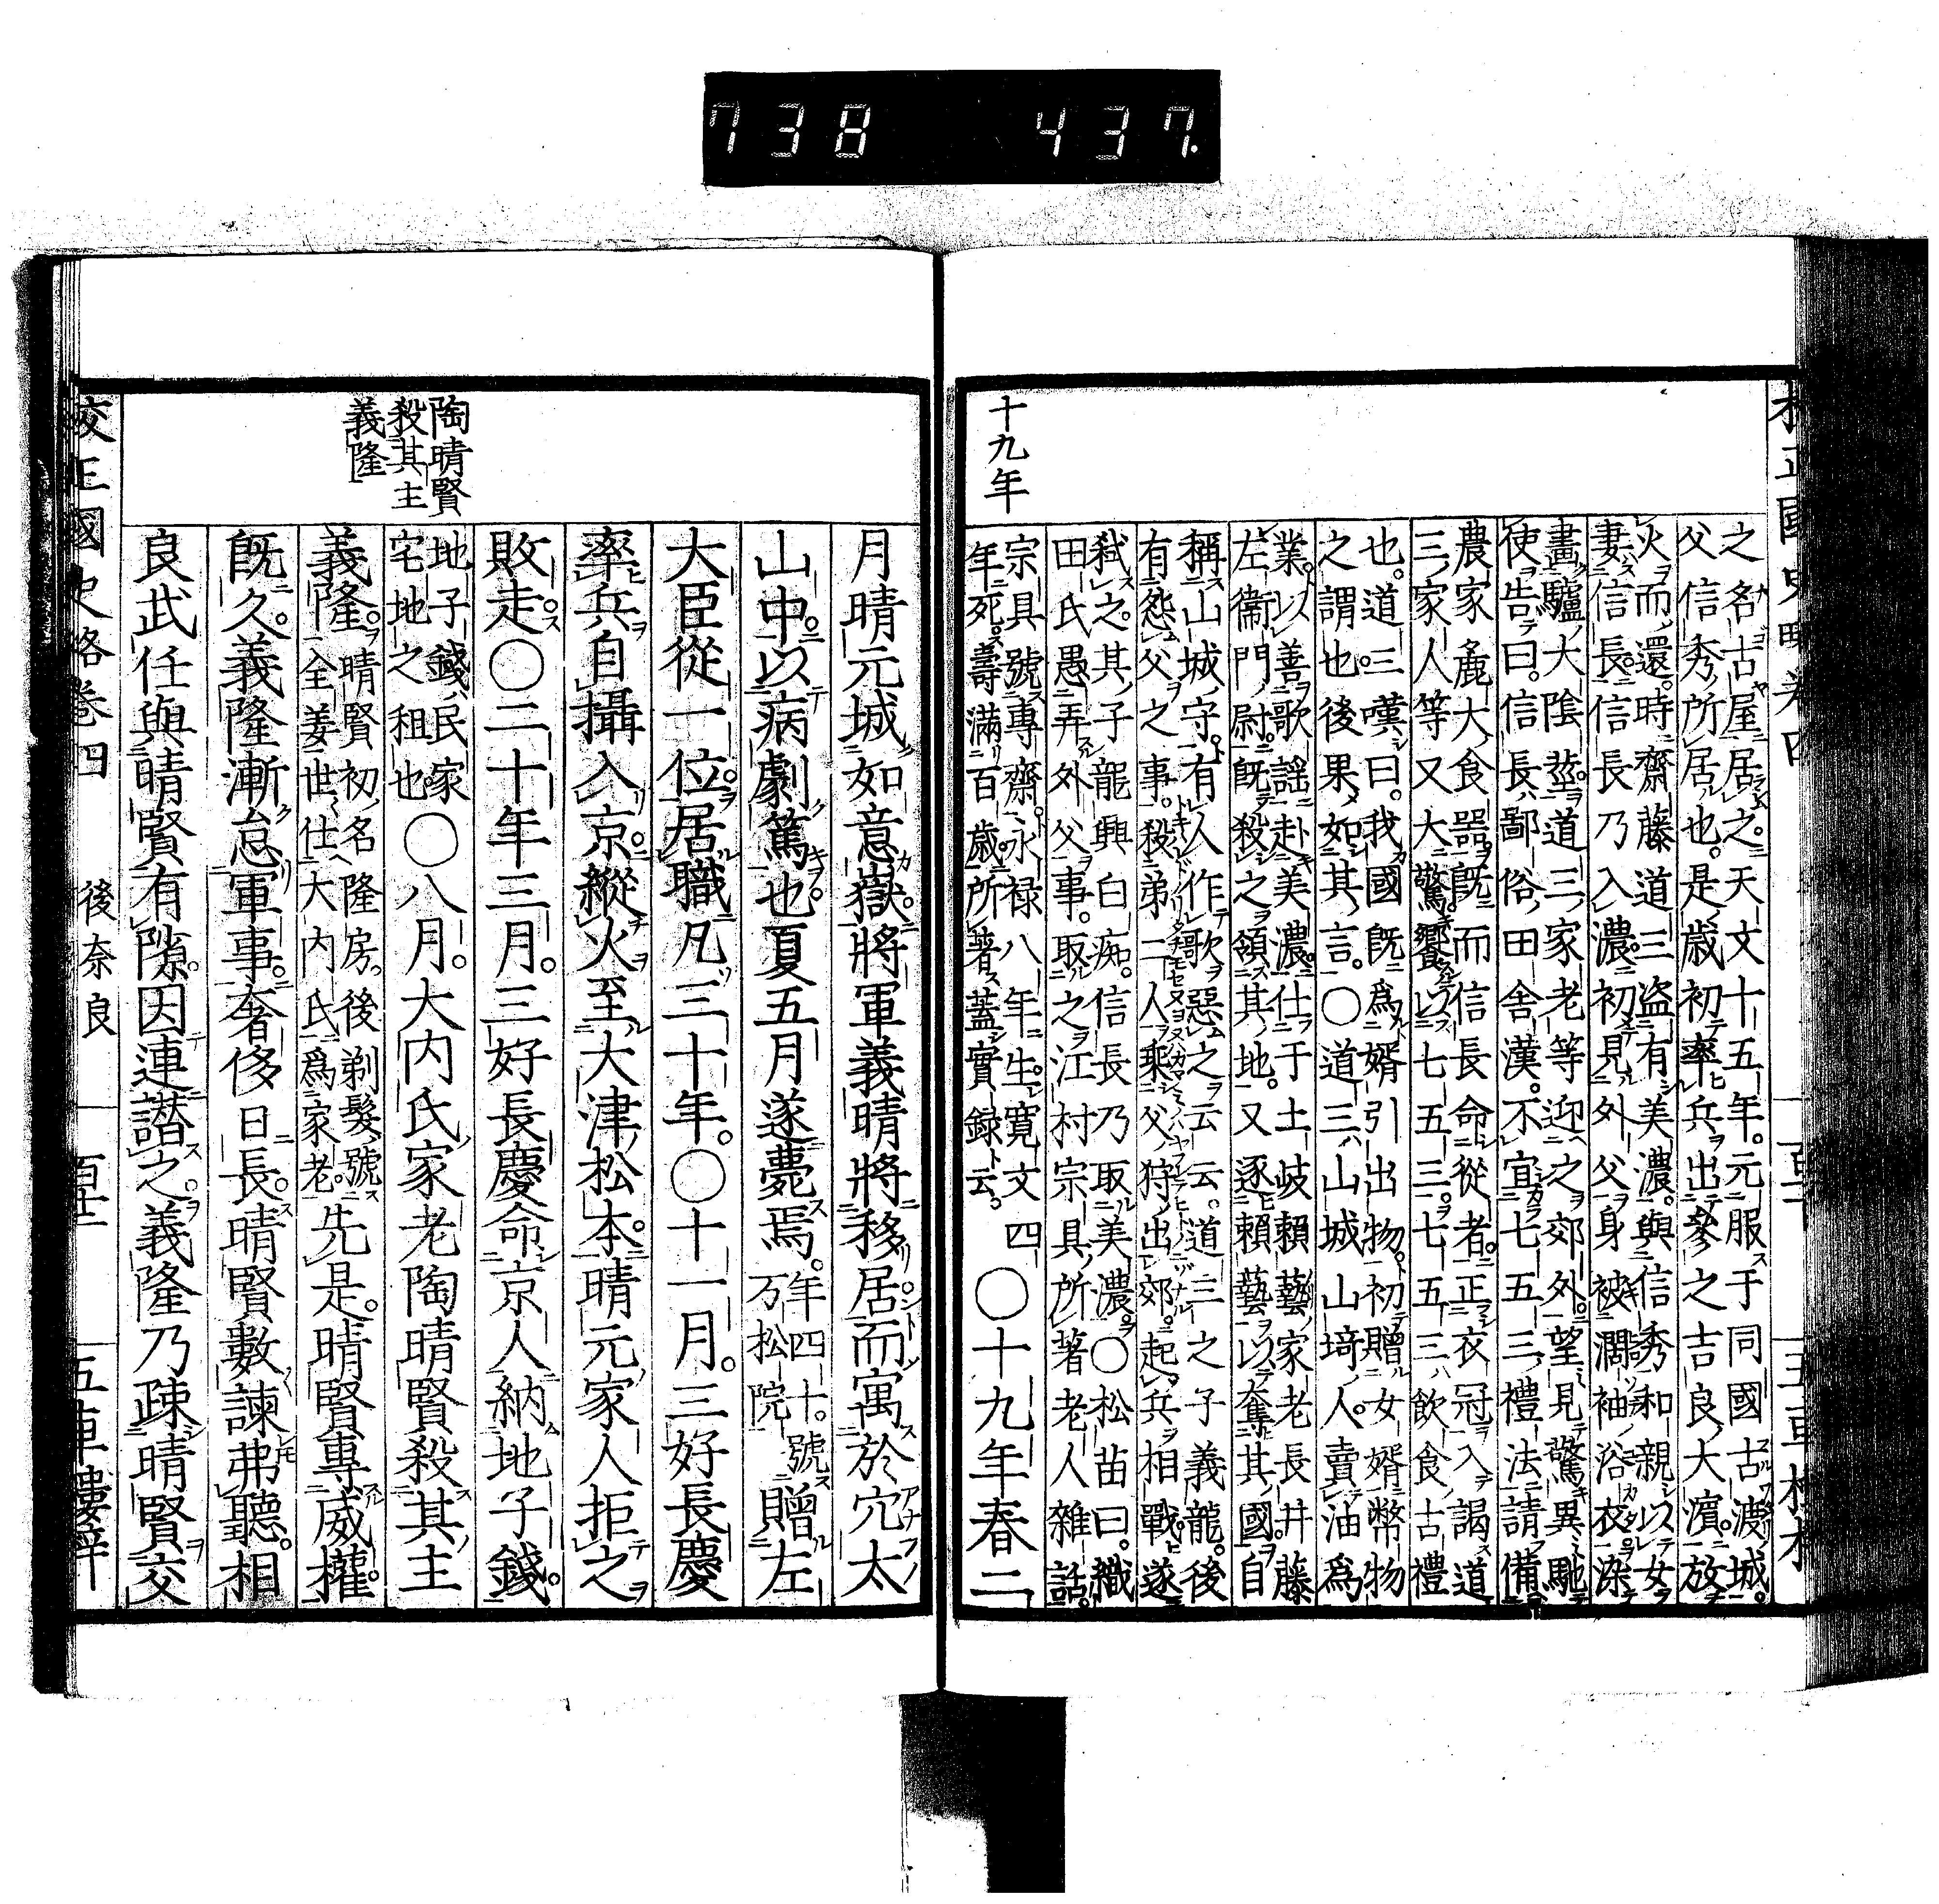 校正國史略卷四
五車樓梓
之名古屋居之。天文十五年。元服于同國古渡城。
父信秀所居也。是歲初率兵出參之吉良大濱。放
火而還。時齋藤道三盜有美濃。與信秀和親以女
妻信長。信長乃入濃。初見外父身被濶袖浴衣染
畫驢大陰莖。道三家老等迎之郊外。望見驚異馳
使告曰。信長鄙俗田舍漢。不宜七五三禮法請備
農家麁大食器。旣而信長命從者。正衣冠入謁道
三家人等又大驚。饗以七五三。七五三飲食古禮
也。道三嘆曰。我國旣爲婿引出物。初贈女婿幣物
之謂也。後果如其言。〇道三山城山埼人。賣油爲
業。以善歌謡赴美濃。仕于土岐賴藝家老長井藤
左衞門尉。旣殺之領其地。又逐賴藝以奪其國。自
稱山城守。有人作歌惡之云云。道三之子義龍。後
有怨父之事。殺弟二人乘父狩出郊。起兵相戰。遂
弑之。其子龍興白痴。信長乃取美濃。〇松苗曰。織
田氏愚弄外父事。取之江村宗具所著老人雜話。
十九年
宗具號專齋。永祿八年生。寬文四
年死。壽滿百歲。所著蓋實録云。
〇十九年春二
月晴元城如意嶽。將軍義晴將移居而寓於穴太
山中。以病劇篤也夏五月遂薨焉。
年四十。號
万松院
贈左
大臣從一位。居職凡三十年。〇十一月。三好長慶
率兵自攝入京。縱火至大津松本。晴元家人拒之
敗走。〇二十年三月。三好長慶命京人納地子錢。
陶晴賢
殺其主
義隆
地子錢民家
宅地之租也
〇八月。大内氏家老陶晴賢殺其主
義隆。
晴賢初名隆房。後剃髮號
全姜世仕大内氏爲家老。
先是。晴賢專威權。
旣久。義隆漸怠軍事。奢侈日長。晴賢數諫弗聽。相
良武任與晴賢有隙。因連譖之。義隆乃疎晴賢交
校正國史略卷四
後奈良
五車樓梓